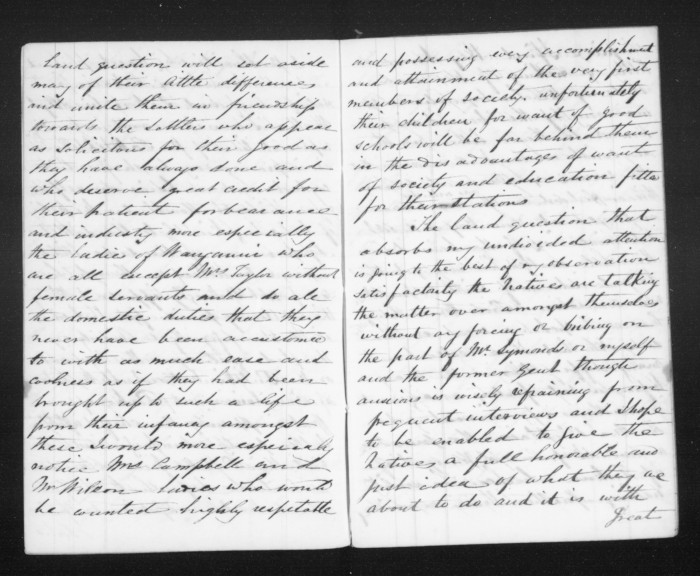 Land question will set aside
many of their little differences
and unite them in friendship
towards the Settlers who appear
as solicitous for their good as
they have always done and
who deserve great credit for
their patient forbearance
and industry more especially
the Ladies of Wanganui who
are all except Mrs Taylor without
female servants and do all
the domestic duties that they
never have been accustomed
to with as much ease and
coolness as if they had been
brought up to such a life
from their infancy amongst
these I would more especially
notice Mrs Campbell and
Mrs Wilson Ladies who would
be counted highly respectable
and possessing every accomplishment
and attainment of the very first
members of Society. unfortunately
their children for want of good
schools will be far behind them
in the disadvantages of want
of society and education fitted
for their stations
The land question that
absorbs my undivided attention
is going to the best of my observation
satisfactorily the Natives are talking
the matter over amongst themselves
without any forcing or bribing on
the part of Mr Symonds or myself
and the former Gent though
anxious is wisely refraining from
frequent interviews and I hope
to be enabled to give the
Natives a full honorable and
just idea of what they are
about to do and it is with
great